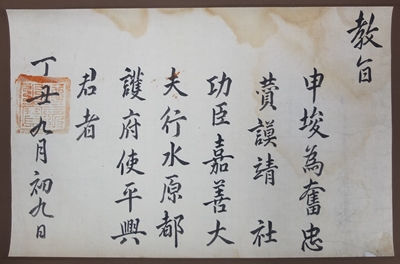 教旨
申埈為奮忠
賛謨靖社
功臣嘉善大
夫行水原都
護府使平興
君者
丁丑九月初九日